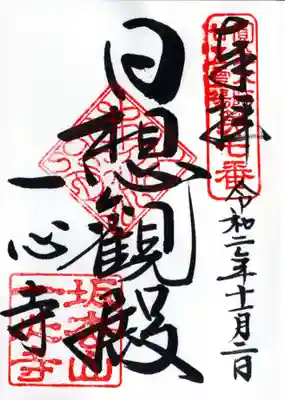 奉拝
令和二年十一月二日
日想観殿
一心寺
坂松山
一心寺